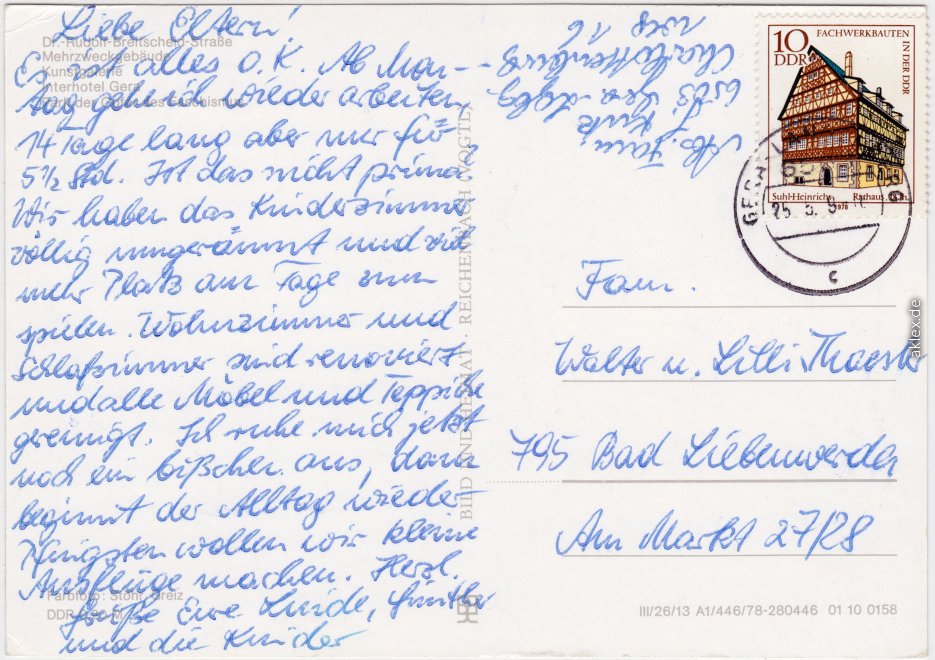 Liebe Eltern!
Es ist alles o.K. Ab Mon-
tag geh ich wieder arbeiten
14 Tage lang aber nur für
5 1/2 Std. Ist das nicht prima?
Wir haben das Kinderzimmer
völlig umgeräumt und viel
mehr Platz am Tage zum
spielen. Wohnzimmer und
Schlafzimmer sind renoviert
und alle Möbel und Teppiche
gereinigt. Ich ruhe mich jetzt
noch ein bißchen aus, dann
beginnt der Alltag wieder
Pfingsten wollen wir kleine
Ausflüge machen. Herzl.
Grüße Eure Günther
und die Kinder
Dr.-Rudolf-Breitscheid-Straße
Mehrzweckgebäude
Kunstgalerie
Interhotel Gera
Park der Opfer des Faschismus
Farbfoto: Stöhr, Greiz
DDR M
BILD UND HEIMAT · REICHENBACH (VOGTL)
Ab. Fam.
6503 Gera-
Charlottenburg
weg 16
10
DDR
FACHWERKBAUTEN
IN DER DDR
Suhl-Heinrichs, Rathaus,
1978
25. 5.
c
Fam.
Walter u. Lilli Thaester
795 Bad Liebenwerda
Am Markt 27/28
III/26/13 A1/446/78-280446 01 10 0158
aklex.de